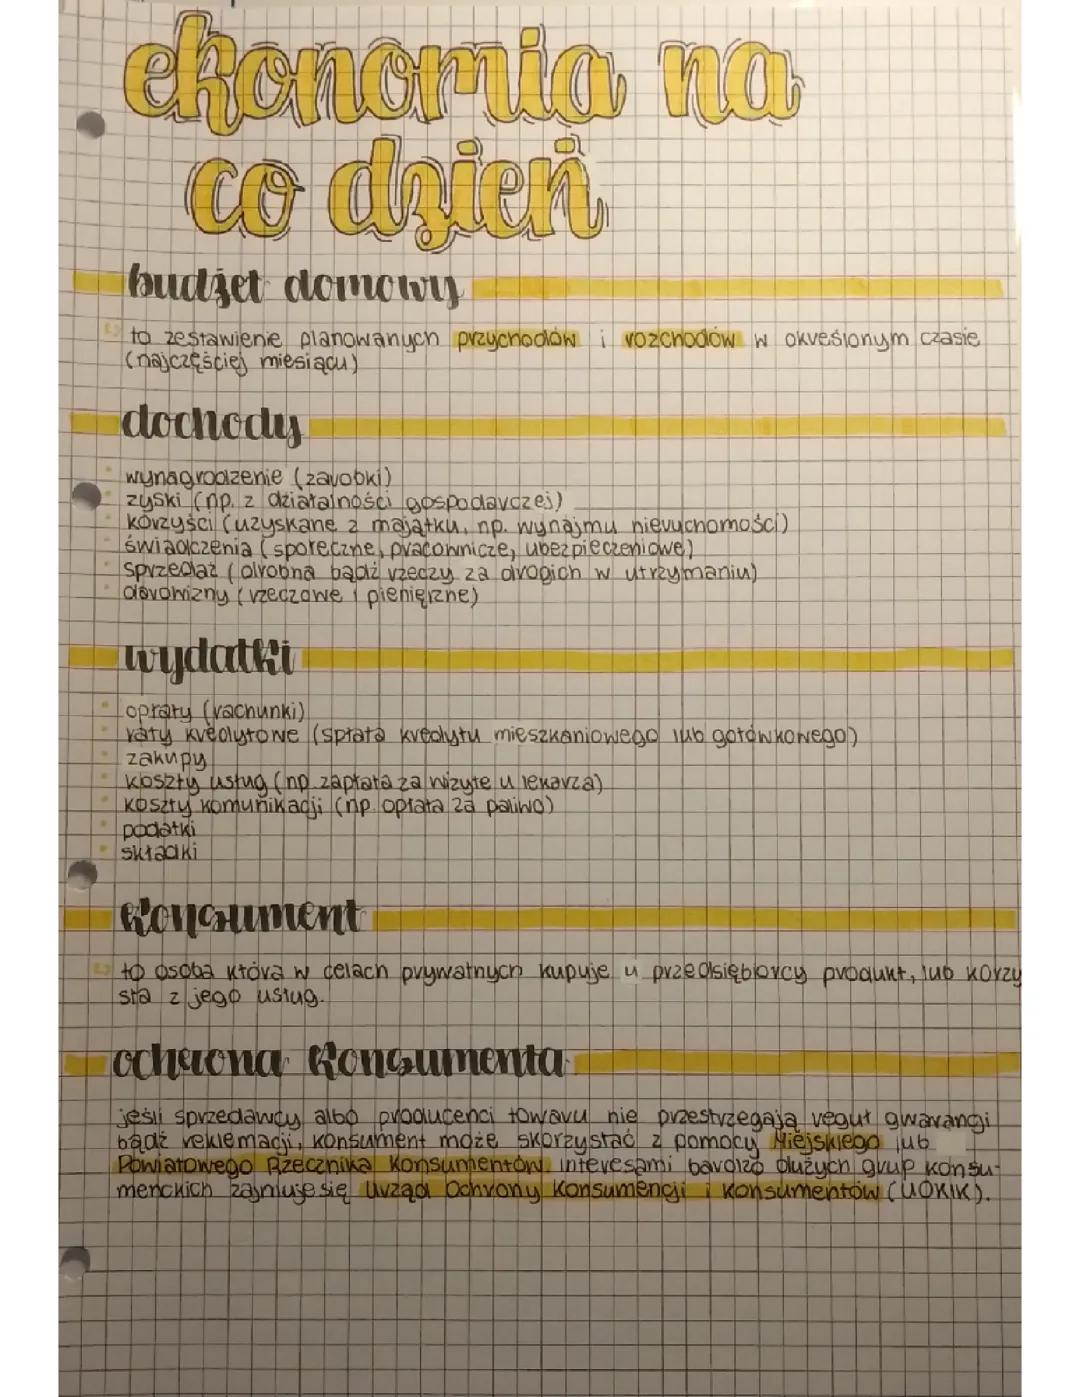 ekonomia na
co dzień
budżet domowy
to zestawienie planowanych przychodów i rozchodów w określonym czasie
(najczęściej miesiącu)
dochody
wynagrodzenie (zarobki)
zyski (np. z działalności gospodarczej)
korzyści (uzyskane z majątku, np. wynajmu nieruchomości)
świadczenia (społeczne, pracownicze, ubezpieczeniowe)
sprzedaż (drobna bądź rzeczy za drogich w utrzymaniu)
darowizny (rzeczowe i pieniężne)
wydatki
opłaty (rachunki)
raty kredytowe (spłata kredytu mieszkaniowego lub gotówkowego)
zakupy
koszty usług (np. zapłata za wizytę u lekarza)
koszty komunikacji (np. opłata za paliwo)
podatki
składki
konsument
to osoba która w celach prywatnych kupuje u przedsiębiorcy produkt, lub korzy
sta z jego usług.
ochrona konsumenta
jeśli sprzedawcy albo producenci towaru nie przestrzegają reguł gwarancji
bądź reklemacji, konsument może skorzystać z pomocy Miejskiego lub
Powiatowego Rzecznika Konsumentów. interesami bardzo dużych grup konsu-
menckich zajmuje się Urząd Ochrony Konsumencji i Konsumentów (UOKIK).